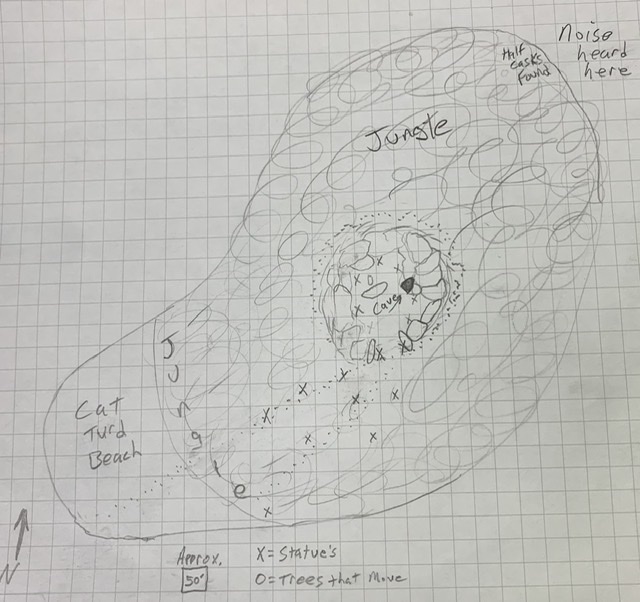 Noise
heard
here
Half
Casks
Found
Jungle
Cave
Jungle
Cat
Turd
Beach
N
Approx.
50'
X = Statue's
O = Trees that Move